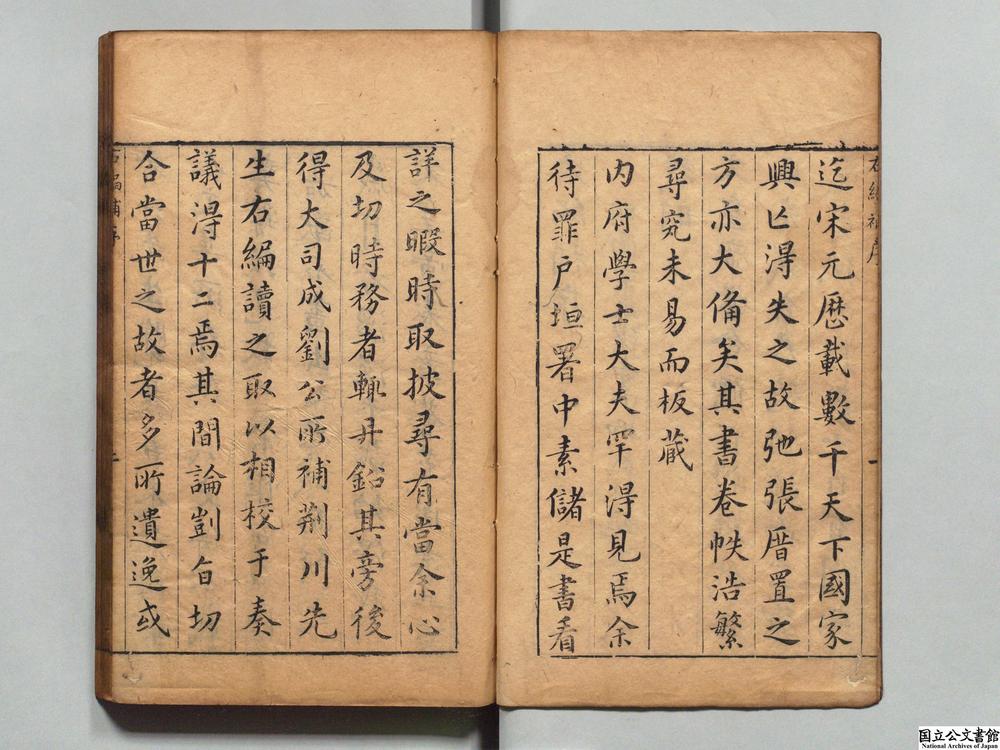 右編補序
迄宋元歷載數千天下國家
興亡得失之故弛張厝置之
方亦大備矣其書卷帙浩繁
尋究未易而板藏
内府學士大夫罕得見焉余
待罪戶垣署中素儲是書看
詳之暇時取披尋有當余心
及切時務者輒丹鉛其旁後
得大司成劉公所補荆川先
生右編讀之取以相校于奏
議得十二焉其間論剴旨切
合當世之故者多所遺逸或
国立公文書館
National Archives of Japan